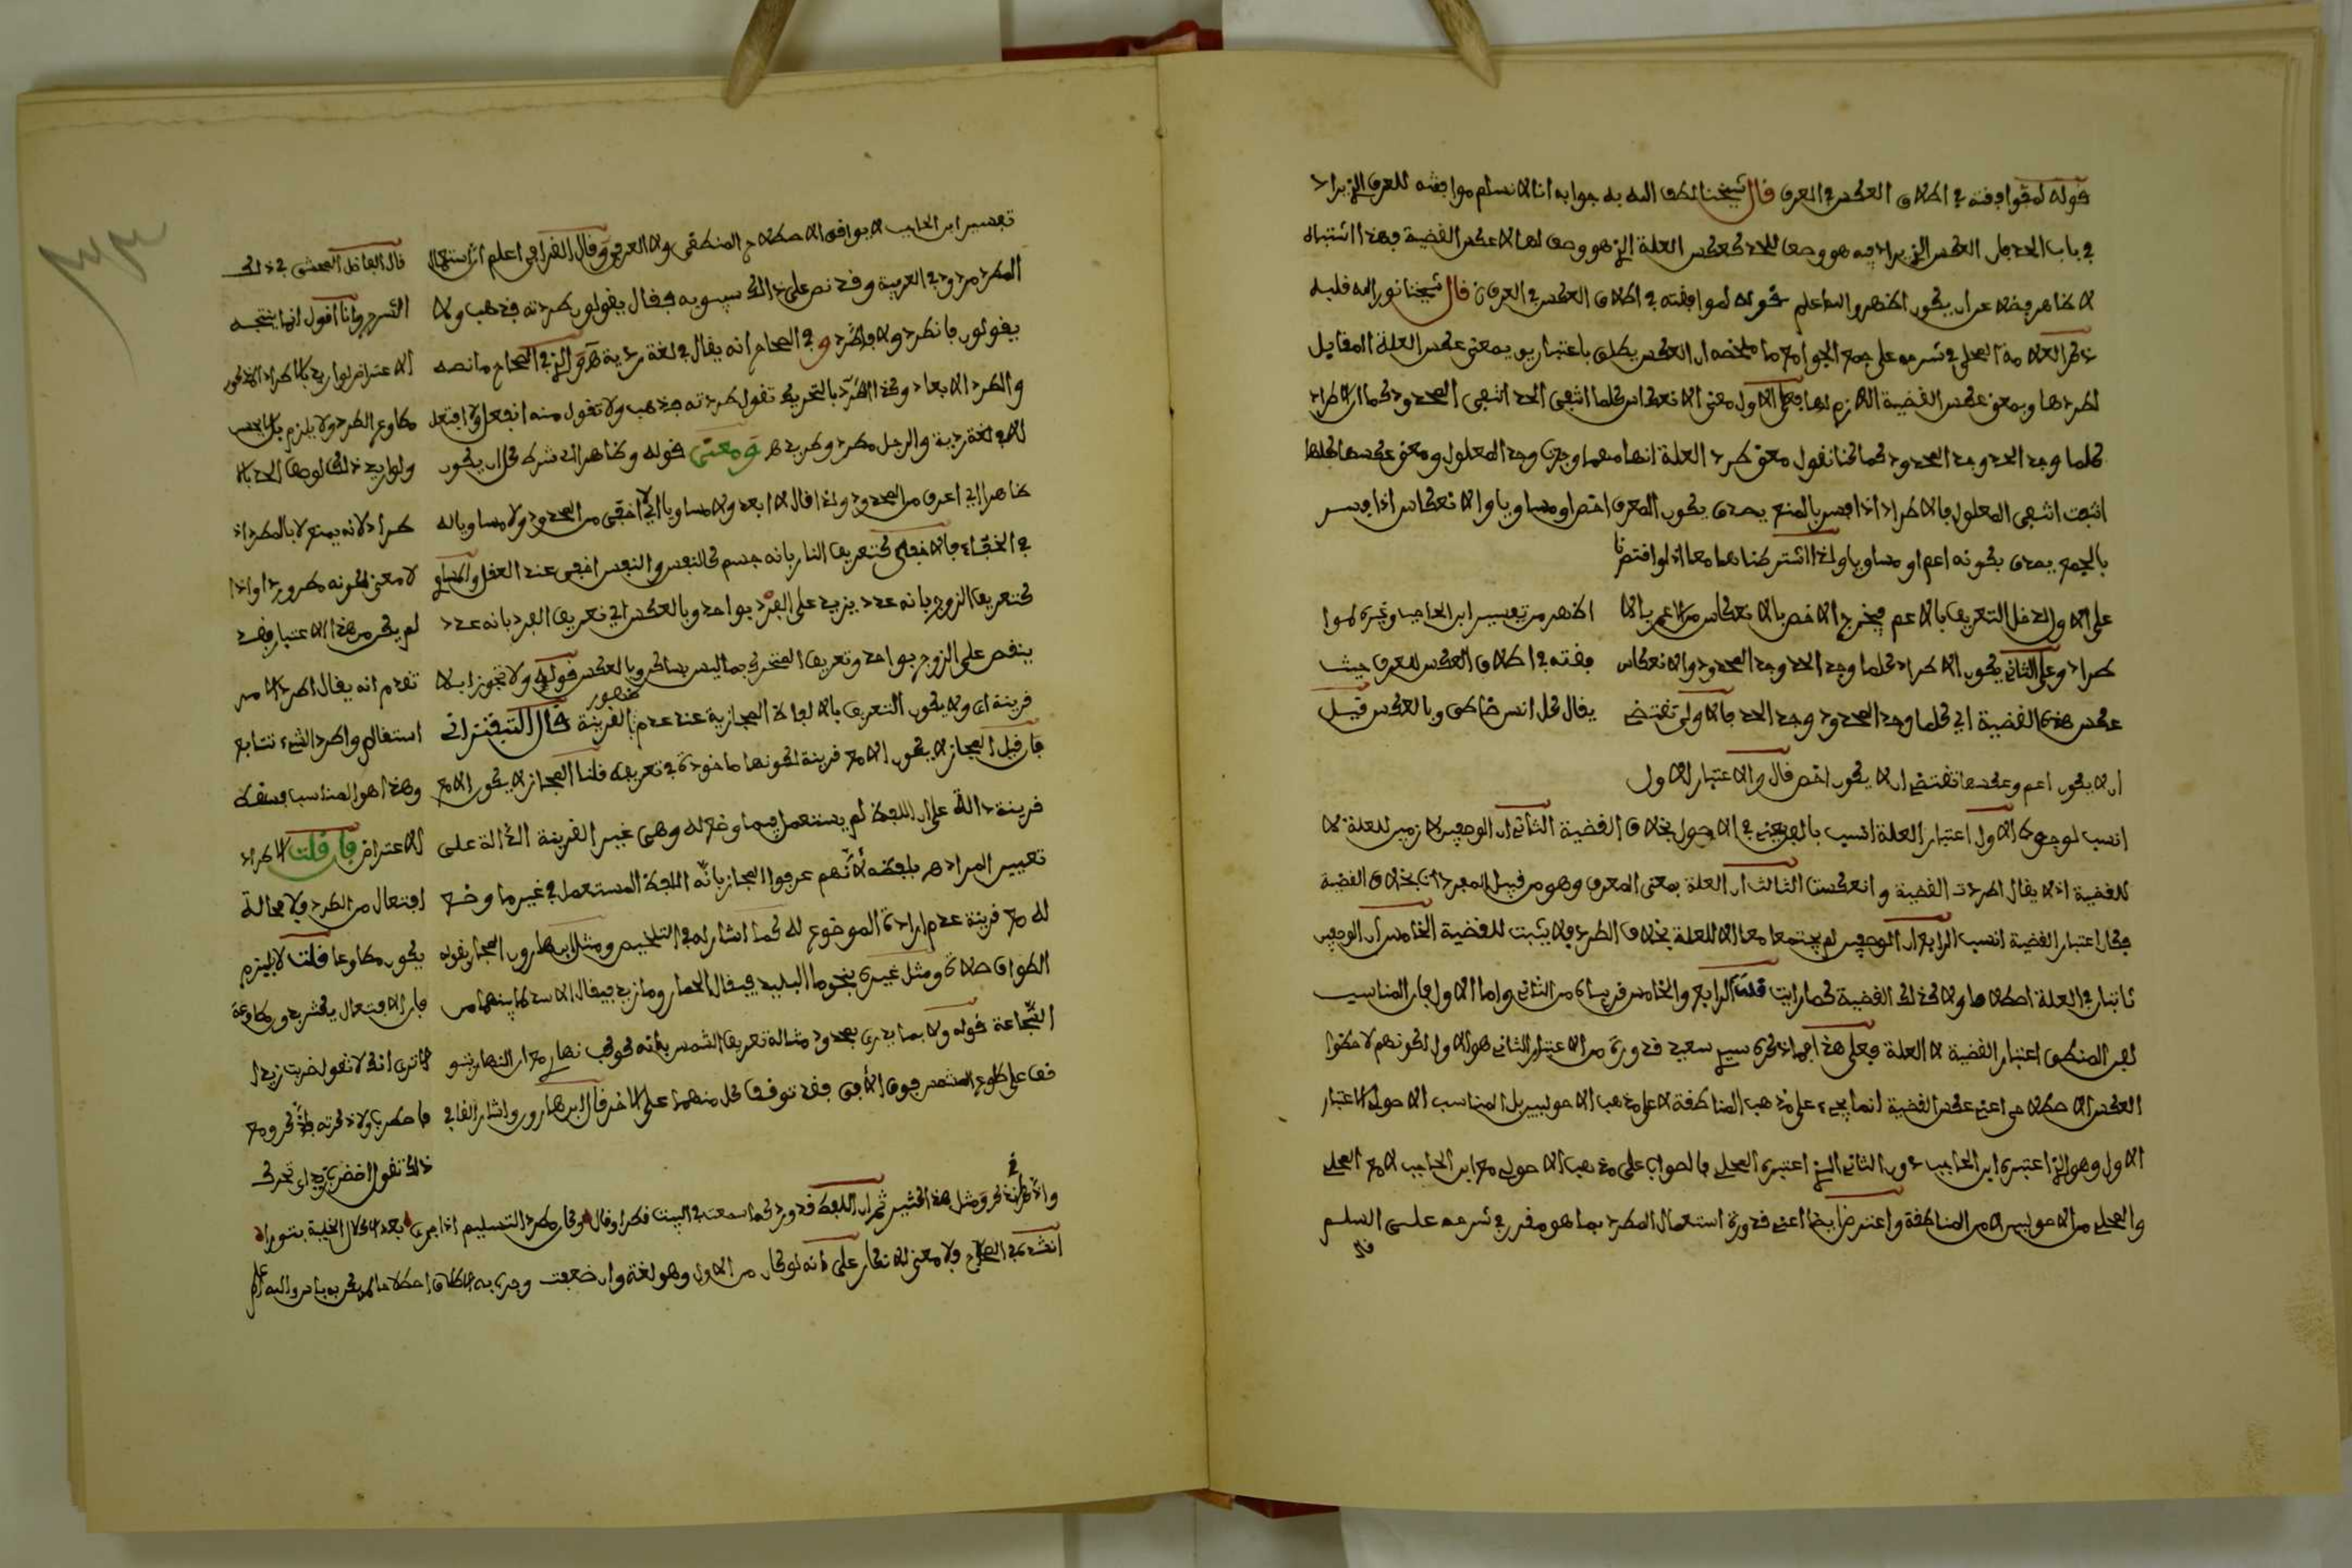 قوله لموافقته في اطلاق العكس في العرف قال شيخنا لطف الله به جوابه انا لا نسلم موافقته للعرف الذي يراد
في باب الحد بل العكس الذي يراد فيه هو وصف للحد كعكس العلة الذي هو وصف لها لا عكس القضية فهذا اشتباه
لا ظاهر فضلا عن ان يكون اظهر والله اعلم قوله لموافقته في اطلاق العكس في العرف قال شيخنا نور الله قلبه
ذكر العلامة المحلي في شرحه على جمع الجوامع ما ملخصه ان العكس يطلق باعتبارين بمعنى عكس العلة المقابل
لطردها وبمعنى عكس القضية اللازم لها فعلى الاول معنى الانعكاس كلما انتفى الحد انتفى المحدود كما ان الاطراد
كلما وجد الحد وجد المحدود كما كنا نقول معنى طرد العلة انها مهما وجدت وجد المعلول ومعنى عكسها كلما
انتفت انتفى المعلول فالاطراد اذا فسر بالمنع يصدق بكون المعرف اخص او مساويا والانعكاس اذا فسر
بالجمع يصدق بكونه اعم او مساويا ولذا اشترطناهما معا اذ لو اقتصرنا
على الاول لدخل التعريف بالاعم فيخرج الاخص بالانعكاس من الاعم بالا
طراد وعلى الثاني يكون الاطراد كلما وجد الحد وجد المحدود والانعكاس
عكس هذه القضية اي كلما وجد المحدود وجد الحد فالاولى تقتضي
ان لا يكون اعم وعكسها تقتضي ان لا يكون اخص قال والاعتبار الاول
اظهر من تفسير ابن الحاجب وغيره لموا
فقته في اطلاق العكس للعرف حيث
يقال كل انسان ضاحك وبالعكس قيل
انسب لوجوه الاول اعتبار العلة انسب بالمعنى في الاصول بخلاف القضية الثاني ان الوصفين لازمين للعلة لا
للقضية اذ لا يقال اطردت القضية وانعكست الثالث ان العلة بمعنى المعرف وهو من قبيل المفردات بخلاف القضية
فكان اعتبار القضية انسب الرابع ان الوصفين لم يجتمعا معا الا للعلة بخلاف الطرد فلا يثبت للقضية الخامس ان الوصفين
ثابتان في العلة اصطلاحا ولا كذلك القضية كما رايت قلت الرابع والخامس قريبان من الثاني واما الاول فان المناسب
لفن المنطق اعتبار القضية لا العلة فعلى هذا فما ذكره سيدي سعيد قدورة من ان اعتبار الثاني هو الاولى لكونهم لاحظوا
العكس الاصطلاحي اعني عكس القضية انما يجيء على مذهب المناطقة لا على مذهب الاصوليين بل المناسب الاصولي الاعتبار
الاول وهو الذي اعتبره ابن الحاجب دون الثاني الذي اعتبره المحلي فالصواب على مذهب الاصولي مع ابن الحاجب لا مع المحلي
والمحلي من الاصوليين لا من المناطقة واعترض ايضا اعني قدورة استعمال المطرد بما هو مقرر في شرحه على السلم
قال
تفسير ابن الحاجب لا يوافق الاصطلاح المنطقي ولا العرفي وقال القرافي اعلم ان استعمال
المطرد مردود في العربية وقد نص على ذلك سيبويه فقال يقولون طردته فذهب ولا
يقولون فانطرد ولا فاطرد وفي الصحاح انه يقال في لغة ردية هـ والذي في الصحاح ما نصه
والطرد الابعاد وكذا الطرد بالتحريك تقول طردته فذهب ولا تقول منه انفعل ولا افتعل
الا في لغة ردية والرجل مطرود وطريد هـ ومعنى قوله وظاهرا اي شرطه كل ان يكون
ظاهرا اي اعرف من المحدود ولذا قال لا ابعد ولا مساويا اي لا اخفى من المحدود ولا مساويا له
في الخفاء فالاخفى كتعريف النار بانه جسم كالنفس والنفس اخفى عند العقل والمساوي
كتعريف الزوج بانه عدد يزيد على الفرد بواحد وبالعكس اي تعريف الفرد بانه عدد
ينقص على الزوج بواحد وتعريف المتحرك بما ليس بساكن وبالعكس قوله ولا تجوزا بلا
قرينة اي ولا يكون التعريف بالالفاظ المجازية عند عدم ظهور القرينة قال التفتزاني
فان قيل المجاز لا يكون الا مع قرينة لكونها ماخوذة في تعريفه قلنا المجاز لا يكون الا مع
قرينة دالة على ان اللفظ لم يستعمل فيما وضع له وهي غير القرينة الدالة على
تعيين المراد هـ بلفظه لانهم عرفوا المجاز بانه اللفظ المستعمل في غير ما وضع
له مع قرينة عدم ارادة الموضوع له كما اشار له في التلخيص ومثل ابن هارون المجاز بقوله
الطواف صلاة ومثل غيره بنحو ما البليد فيقال الحمار وما زيد فيقال الاسد لما بينهما من
الشجاعة قوله ولا بما يدرى بمحدود مثاله تعريف الشمس بانه كوكب نهاري مع ان النهار يتو
قف على طلوع الشمس فوق الافق فقد توقف كل منهما على الاخر قال ابن هارون واشار القاضي
قال الفاضل المحشي في ذلك
الشرح وانا اقول انما يتجه
الاعتراض لو اريد بالاطراد المذكور
مطاوع الطرد ولا يلزم بل ليس
ولو اريد ذلك لوصف الحد بالا
طراد لانه يمنع لا بالمطرد اذ
لا معنى لكونه مطرودا واذا
لم يكن من هذا الاعتبار فقد
تقدم انه يقال اطرد الامر
استقام واطرد الشيء تتابع
وهذا هو المناسب فسقط
الاعتراض فان قلت الاطراد
افتعال من الطرد فلا محالة
يكون مطاوعا قلت لا يلزم
فان الافتعال يكثر بدون مطاوعة
الا ترى انك لا تقول ضربت زيدا
فاضطرب ولا ذكرته فاذكر ومع
ذلك تقول اضطرب زيد اي تحرك
واذكر اي تذكر ومثل هذا كثير ثم ان اللفظ قد ورد كما سمعت في البيت فكرا وقال وكان مطرد التسليم اذا جرى بعد الكلال
انشده في الصحاح فلا معنى للانكار على انه لو كان من الاول وهو لغة وان ضعفت وجرى به اطلاق اصطلاحا لم يكن به باس والله اعلم